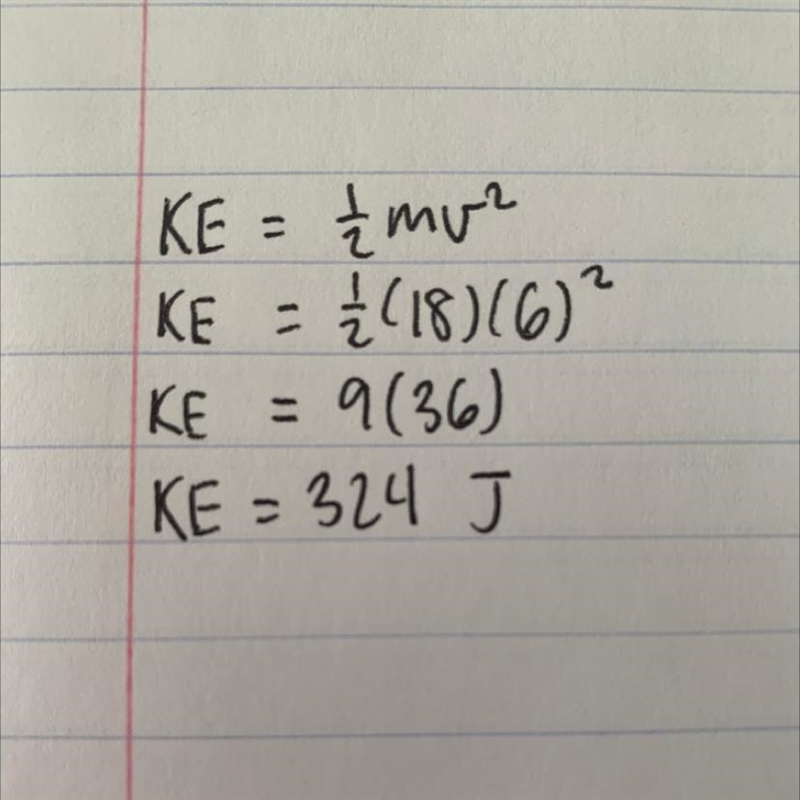 KE = ½mv²
KE = ½(18)(6)²
KE = 9(36)
KE = 324 J